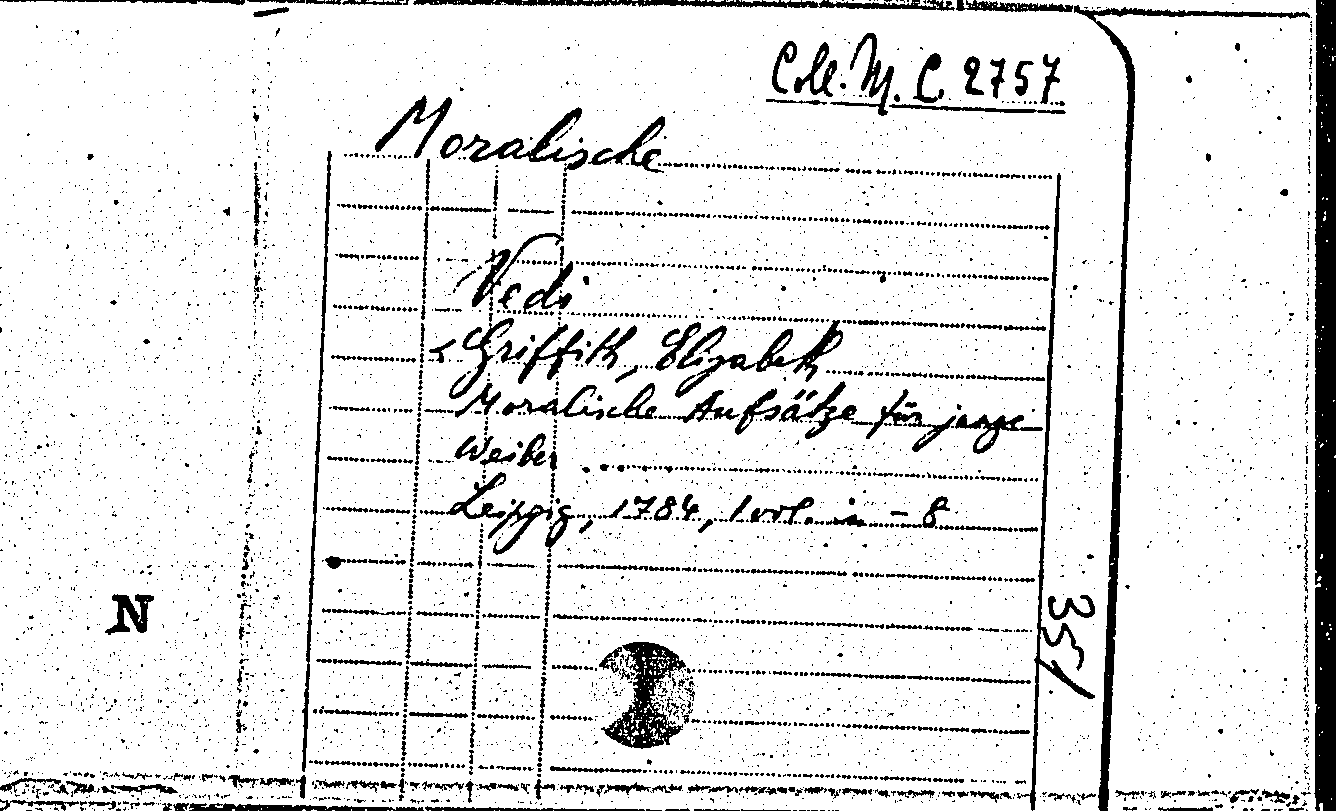 Coll. M. C. 2757
Moralische
Vedi
Griffith, Elizabeth
Moralische Aufsätze für junge
Weiber ......
Leipzig, 1784, 1 vol. in - 8
N
351